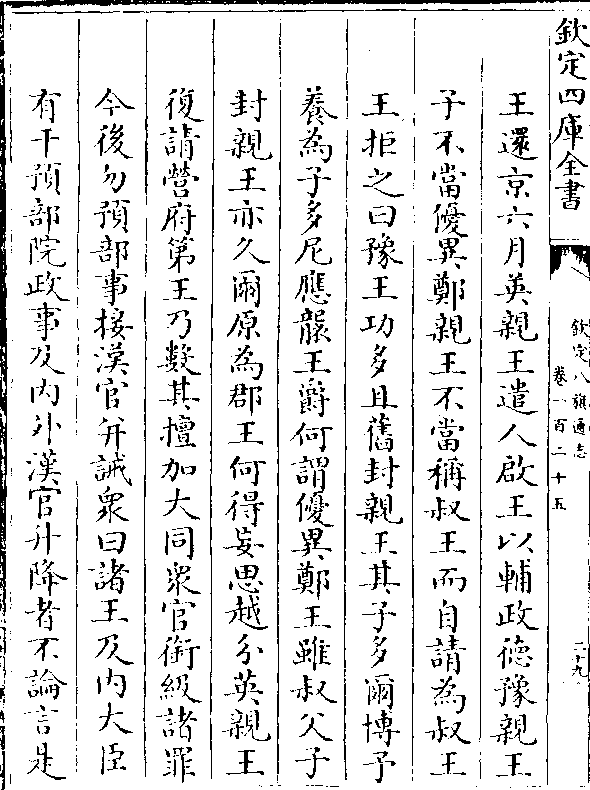 欽定四庫全書
欽定八旗通志
卷一百二十五
二十九
王還京六月英親王遣人啟王以輔政德豫親王
子不當優異鄭親王不當稱叔王而自請為叔王
王拒之曰豫王功多且舊封親王其子多爾博予
養為子多尼應襲王爵何謂優異鄭王雖叔父子
封親王亦久爾原為郡王何得妄思越分英親王
復請營府第王乃數其擅加大同眾官銜級諸罪
今後勿預部事接漢官并誡衆曰諸王及内大臣
有干預部院政事及内外漢官升降者不論言是